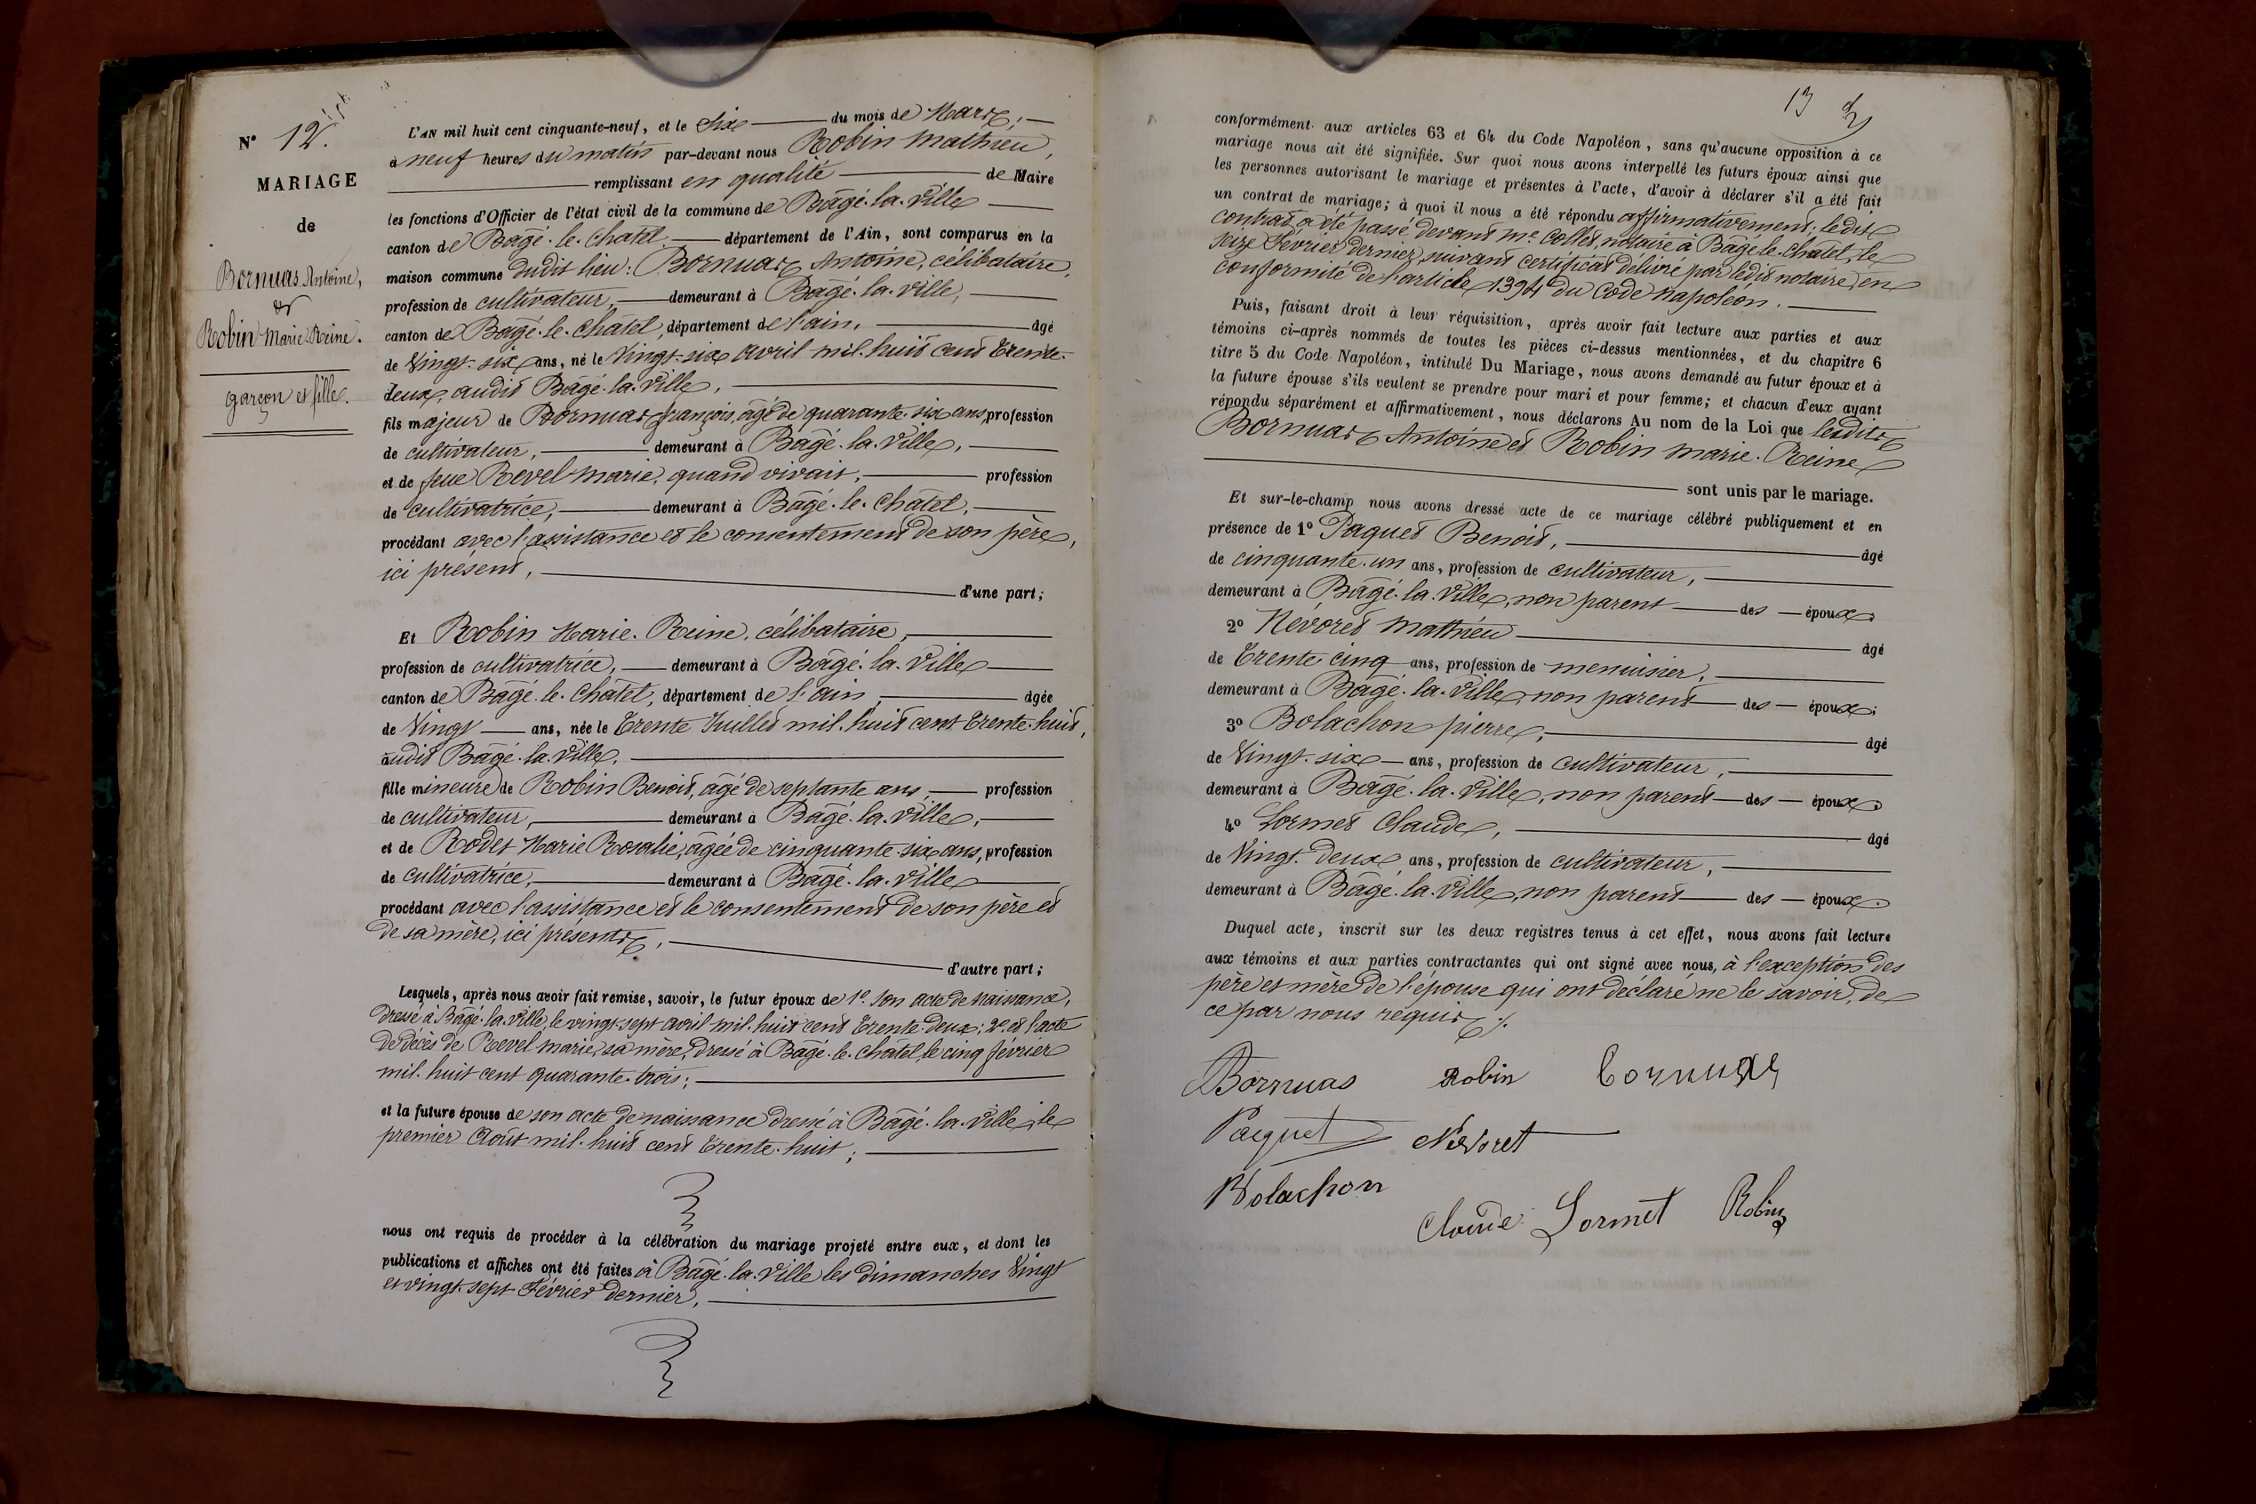 N° 12.
MARIAGE
de
Bornuas Antoine,
et
Robin Marie Reine.
garçon et fille.
L'AN mil huit cent cinquante-neuf, et le Six du mois de Mars,
à neuf heures du matin par-devant nous Robin Mathieu,
remplissant en qualité de Maire
les fonctions d'Officier de l'état civil de la commune de Bâgé-la-Ville
canton de Bâgé-le-Châtel, département de l'Ain, sont comparus en la
maison commune dudit lieu: Bornuas Antoine, célibataire,
profession de cultivateur, demeurant à Bâgé-la-Ville,
canton de Bâgé-le-Châtel, département de l'ain, âgé
de Vingt-six ans, né le Vingt-six avril mil-huit cent trente-
deux, audit Bâgé-la-Ville,
fils majeur de Bornuas françois, âgé de quarante-six ans, profession
de cultivateur, demeurant à Bâgé-la-Ville,
et de feue Revel Marie, quand vivait, profession
de cultivatrice, demeurant à Bâgé-le-Châtel,
procédant avec l'assistance et le consentement de son père,
ici présent, d'une part;
Et Robin Marie-Reine, célibataire,
profession de cultivatrice, demeurant à Bâgé-la-Ville
canton de Bâgé-le-Châtel, département de l'ain, âgée
de Vingt ans, née le trente Juillet mil-huit cent trente-huit,
audit Bâgé-la-Ville,
fille mineure de Robin Benoit, âgé de septante ans, profession
de cultivateur, demeurant à Bâgé-la-Ville,
et de Rodet Marie Rosalie, âgée de cinquante-six ans, profession
de cultivatrice, demeurant à Bâgé-la-Ville
procédant avec l'assistance et le consentement de son père et
de sa mère, ici présents, d'autre part;
Lesquels, après nous avoir fait remise, savoir, le futur époux de 1° son acte de naissance,
dressé à Bâgé-la-Ville, le vingt-sept avril mil-huit cent trente-deux; 2° et l'acte
de décès de Revel marie, sa mère, dressé à Bâgé-le-Châtel, le cinq février
mil-huit cent quarante-trois;
et la future épouse de son acte de naissance dressé à Bâgé-la-Ville, le
premier Août mil-huit cent trente-huit;
nous ont requis de procéder à la célébration du mariage projeté entre eux, et dont les
publications et affiches ont été faites à Bâgé-la-Ville les dimanches Vingt
et vingt-sept Février dernier,
13
conformément aux articles 63 et 64 du Code Napoléon, sans qu'aucune opposition à ce
mariage nous ait été signifiée. Sur quoi nous avons interpellé les futurs époux ainsi que
les personnes autorisant le mariage et présentes à l'acte, d'avoir à déclarer s'il a été fait
un contrat de mariage; à quoi il nous a été répondu affirmativement; ledit
contrat a été passé devant Me. Collet, notaire à Bâgé-le-Châtel, le
seize Février dernier, suivant certificat délivré par ledit notaire, en
conformité de l'article 1394 du Code Napoléon.
Puis, faisant droit à leur réquisition, après avoir fait lecture aux parties et aux
témoins ci-après nommés de toutes les pièces ci-dessus mentionnées, et du chapitre 6
titre 5 du Code Napoléon, intitulé Du Mariage, nous avons demandé au futur époux et à
la future épouse s'ils veulent se prendre pour mari et pour femme; et chacun d'eux ayant
répondu séparément et affirmativement, nous déclarons Au nom de la Loi que lesdits
Bornuas Antoine et Robin Marie-Reine
sont unis par le mariage.
Et sur-le-champ nous avons dressé acte de ce mariage célébré publiquement et en
présence de 1° Paquet Benoit, âgé
de cinquante-un ans, profession de cultivateur,
demeurant à Bâgé-la-Ville, non parent des époux
2° Névoret Mathieu âgé
de trente-cinq ans, profession de menuisier,
demeurant à Bâgé-la-Ville, non parent des époux;
3° Bolachon pierre, âgé
de Vingt-six ans, profession de cultivateur,
demeurant à Bâgé-la-Ville, non parent des époux.
4° Lormet Claude, âgé
de Vingt-deux ans, profession de cultivateur,
demeurant à Bâgé-la-Ville, non parent des époux.
Duquel acte, inscrit sur les deux registres tenus à cet effet, nous avons fait lecture
aux témoins et aux parties contractantes qui ont signé avec nous, à l'exception des
père et mère de l'épouse qui ont déclaré ne le savoir, de
ce par nous requis.
Bornuas Robin bornuas
Paquet Nevoret
Bolachon
Claude Lormet Robin